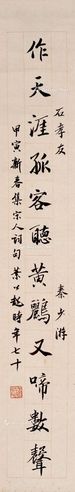 作天涯孤客聽黃鸝又啼數聲
石孝友
秦少游
甲寅新春集宗人詞句葉公超時年七十